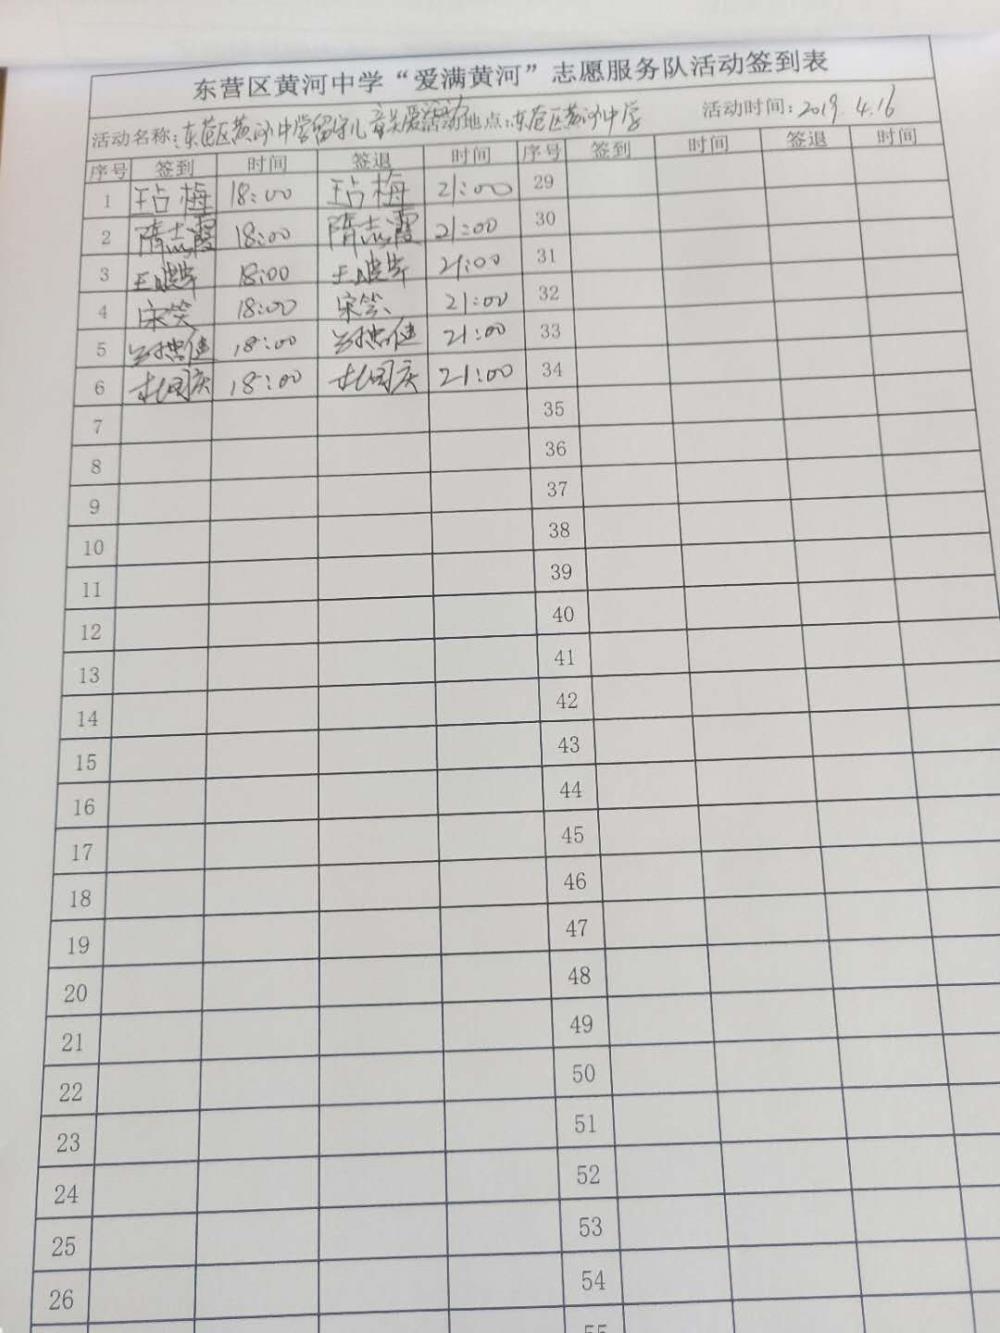 东营区黄河中学“爱满黄河”志愿服务队活动签到表
活动名称:东营区黄河中学留守儿童关爱活动 活动地点:东营区黄河中学 活动时间:2019.4.16
序号 签到 时间 签退 时间 序号 签到 时间 签退 时间
1 王占梅 18:00 王占梅 21:00 29
2 隋志霞 18:00 隋志霞 21:00 30
3 18:00 21:00 31
4 宋笑 18:00 宋笑 21:00 32
5 18:00 21:00 33
6 杜国庆 18:00 杜国庆 21:00 34
7 35
8 36
9 37
10 38
11 39
12 40
13 41
14 42
15 43
16 44
17 45
18 46
19 47
20 48
21 49
22 50
23 51
24 52
25 53
26 54
55